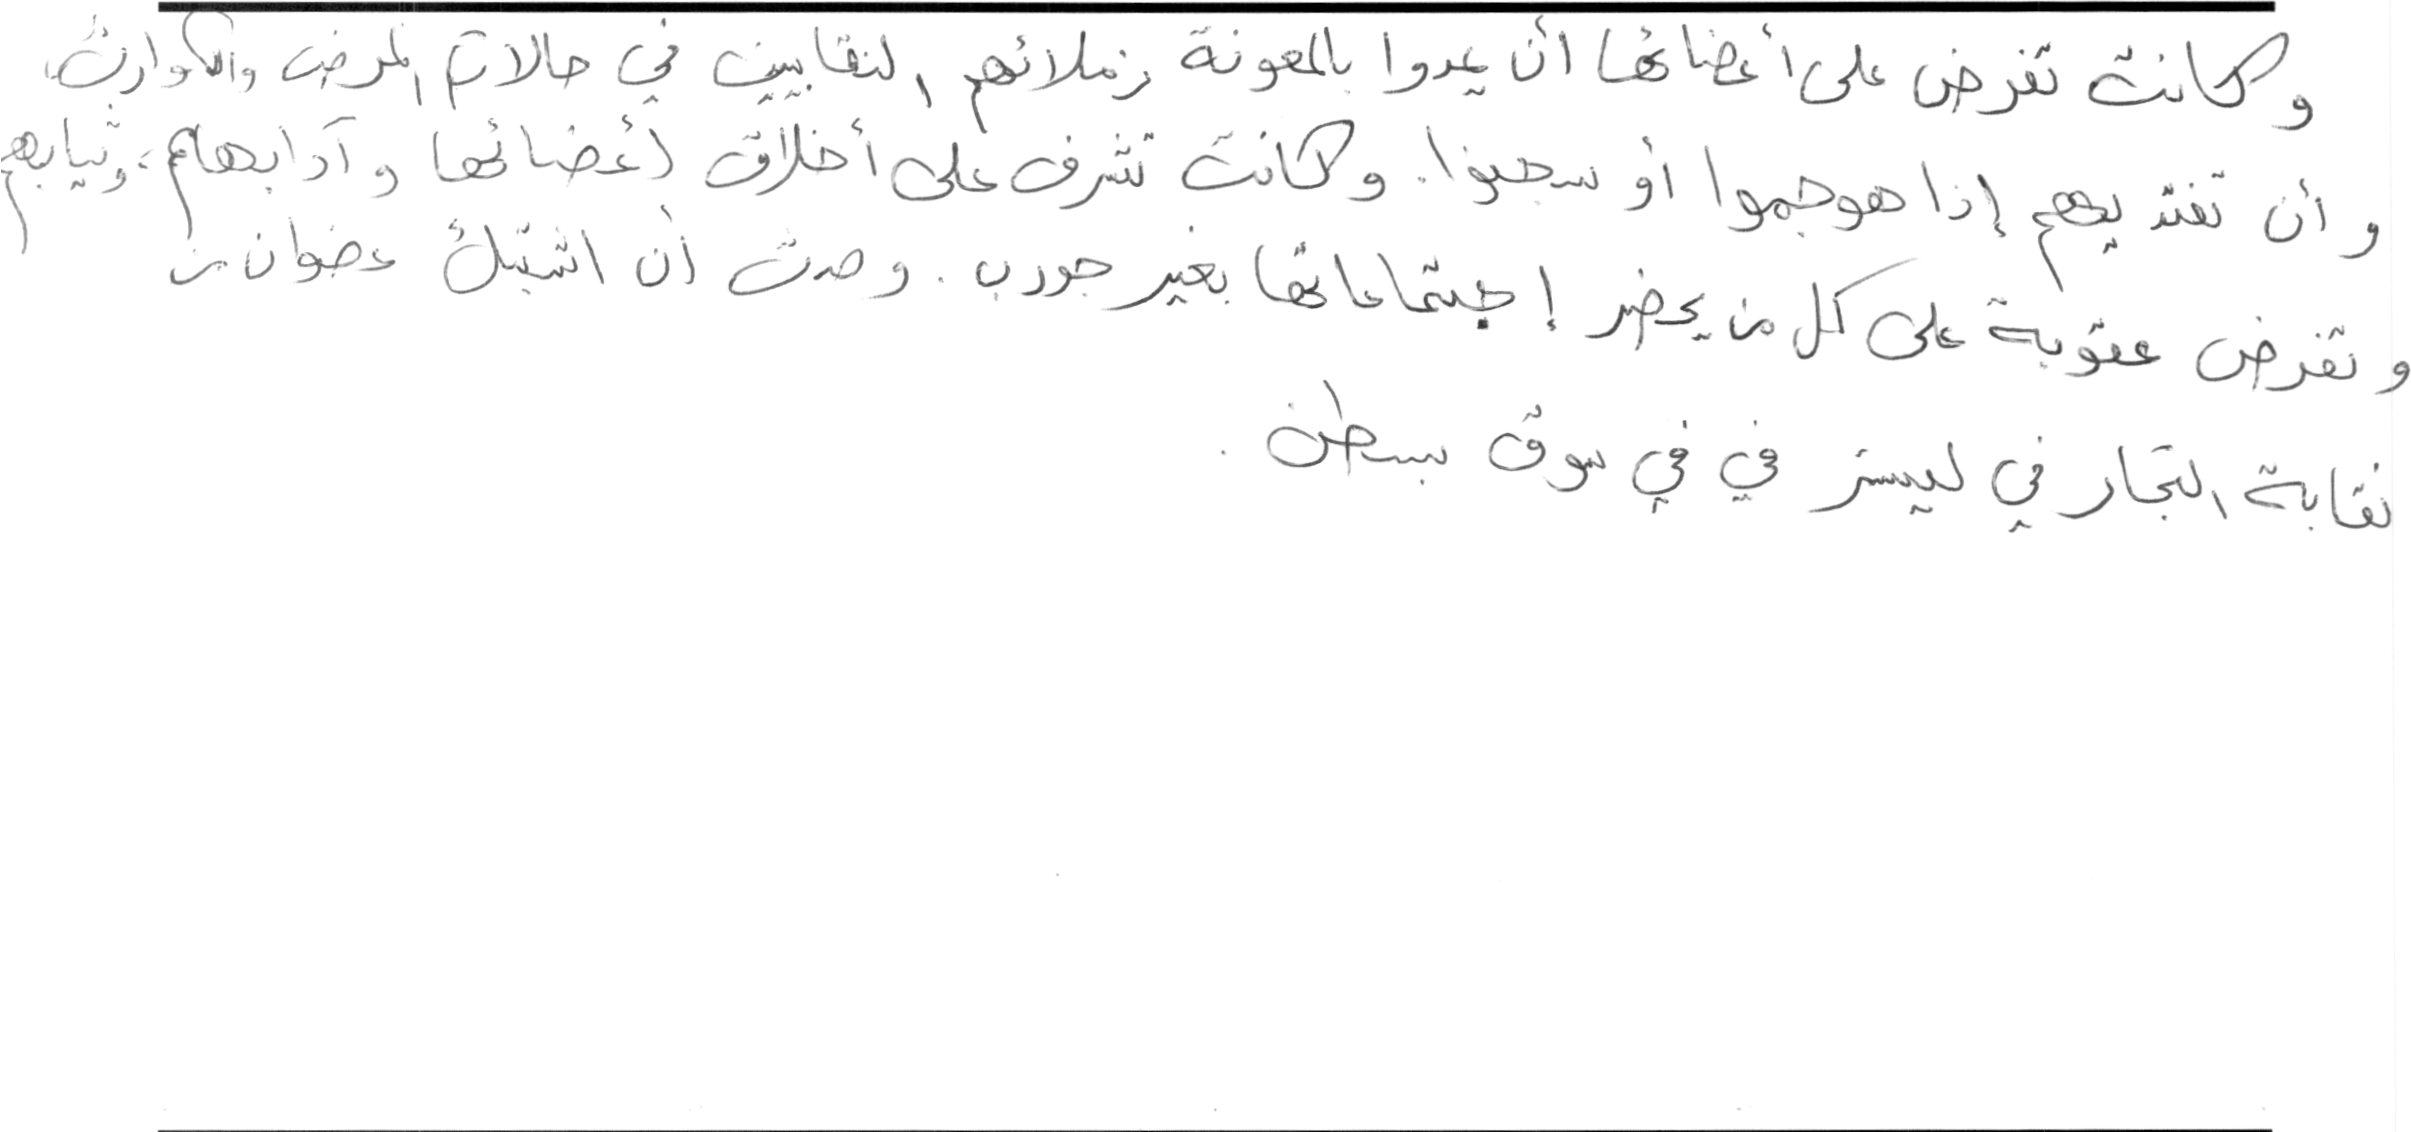 وكانت تفرض على أعضائها أن يمدوا بالمعونة زملائهم النقابيين في حالات المرض والكوارث،
و أن تفتديهم إذا هوجموا أو سجنوا. وكانت تشرف على أخلاق أعضائها وآدابهام، وثيابهم
و تفرض عقوبة على كل من يحضر إجتماعاتها بغير جورب. وحدث أن اشتبك عضوان من
نقابة التجار في ليستر في في سوق بسطن.